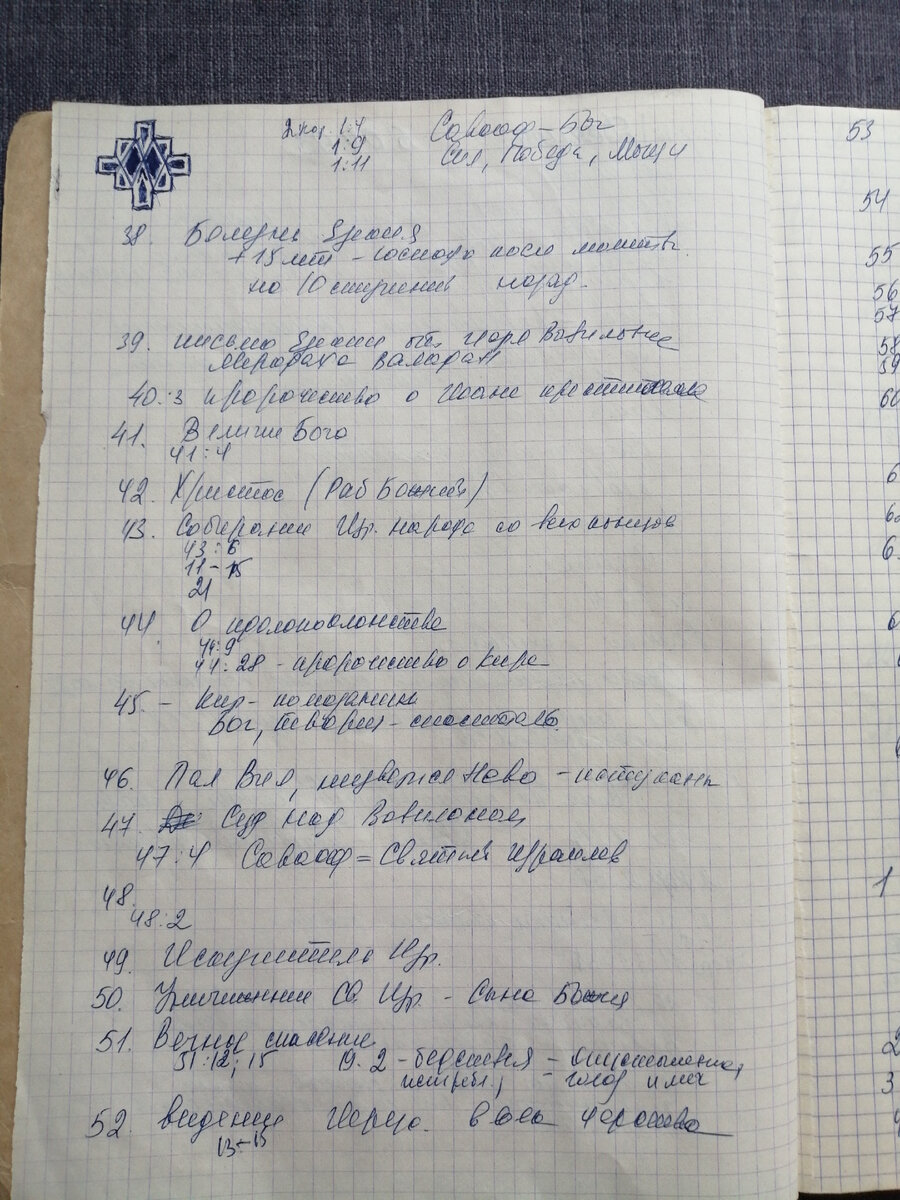 2 Кор. 1:4
1:9
1:11
Саваоф - Бог
Сил, Победа, Мощи
38. Болезнь Езекия
+ 15 лет - Господь после молитвы
на 10 ступеней назад.
39. письмо Езекии от царя Вавилона
Меродаха Валадан
40:3 пророчество о Иоане крестителе
41. Величие Бога
41:4
42. Христос (Раб Божий)
43. Собирание Изр. народа со всех концов
43:6
11-15
21
44 О идолопоклонстве
44:9
44:28 - пророчество о Кире
45. - Кир - помазанник
Бог, творец - спаситель.
46. Пал Вил, низвергся Нево - истуканы
47. Суд над Вавилоном
47:4 Саваоф = Святый Израилев
48.
48:2
49. Искупитель Изр.
50. Уничижение Св. Изр - Сына Божия
51. Вечное спасение
51:12; 15
19. 2 - бедствия - опустошение,
истребл, - голод и меч
52. видение
13-15
53
54
55
56
57
58
59
60
6
6
6
1
2
3